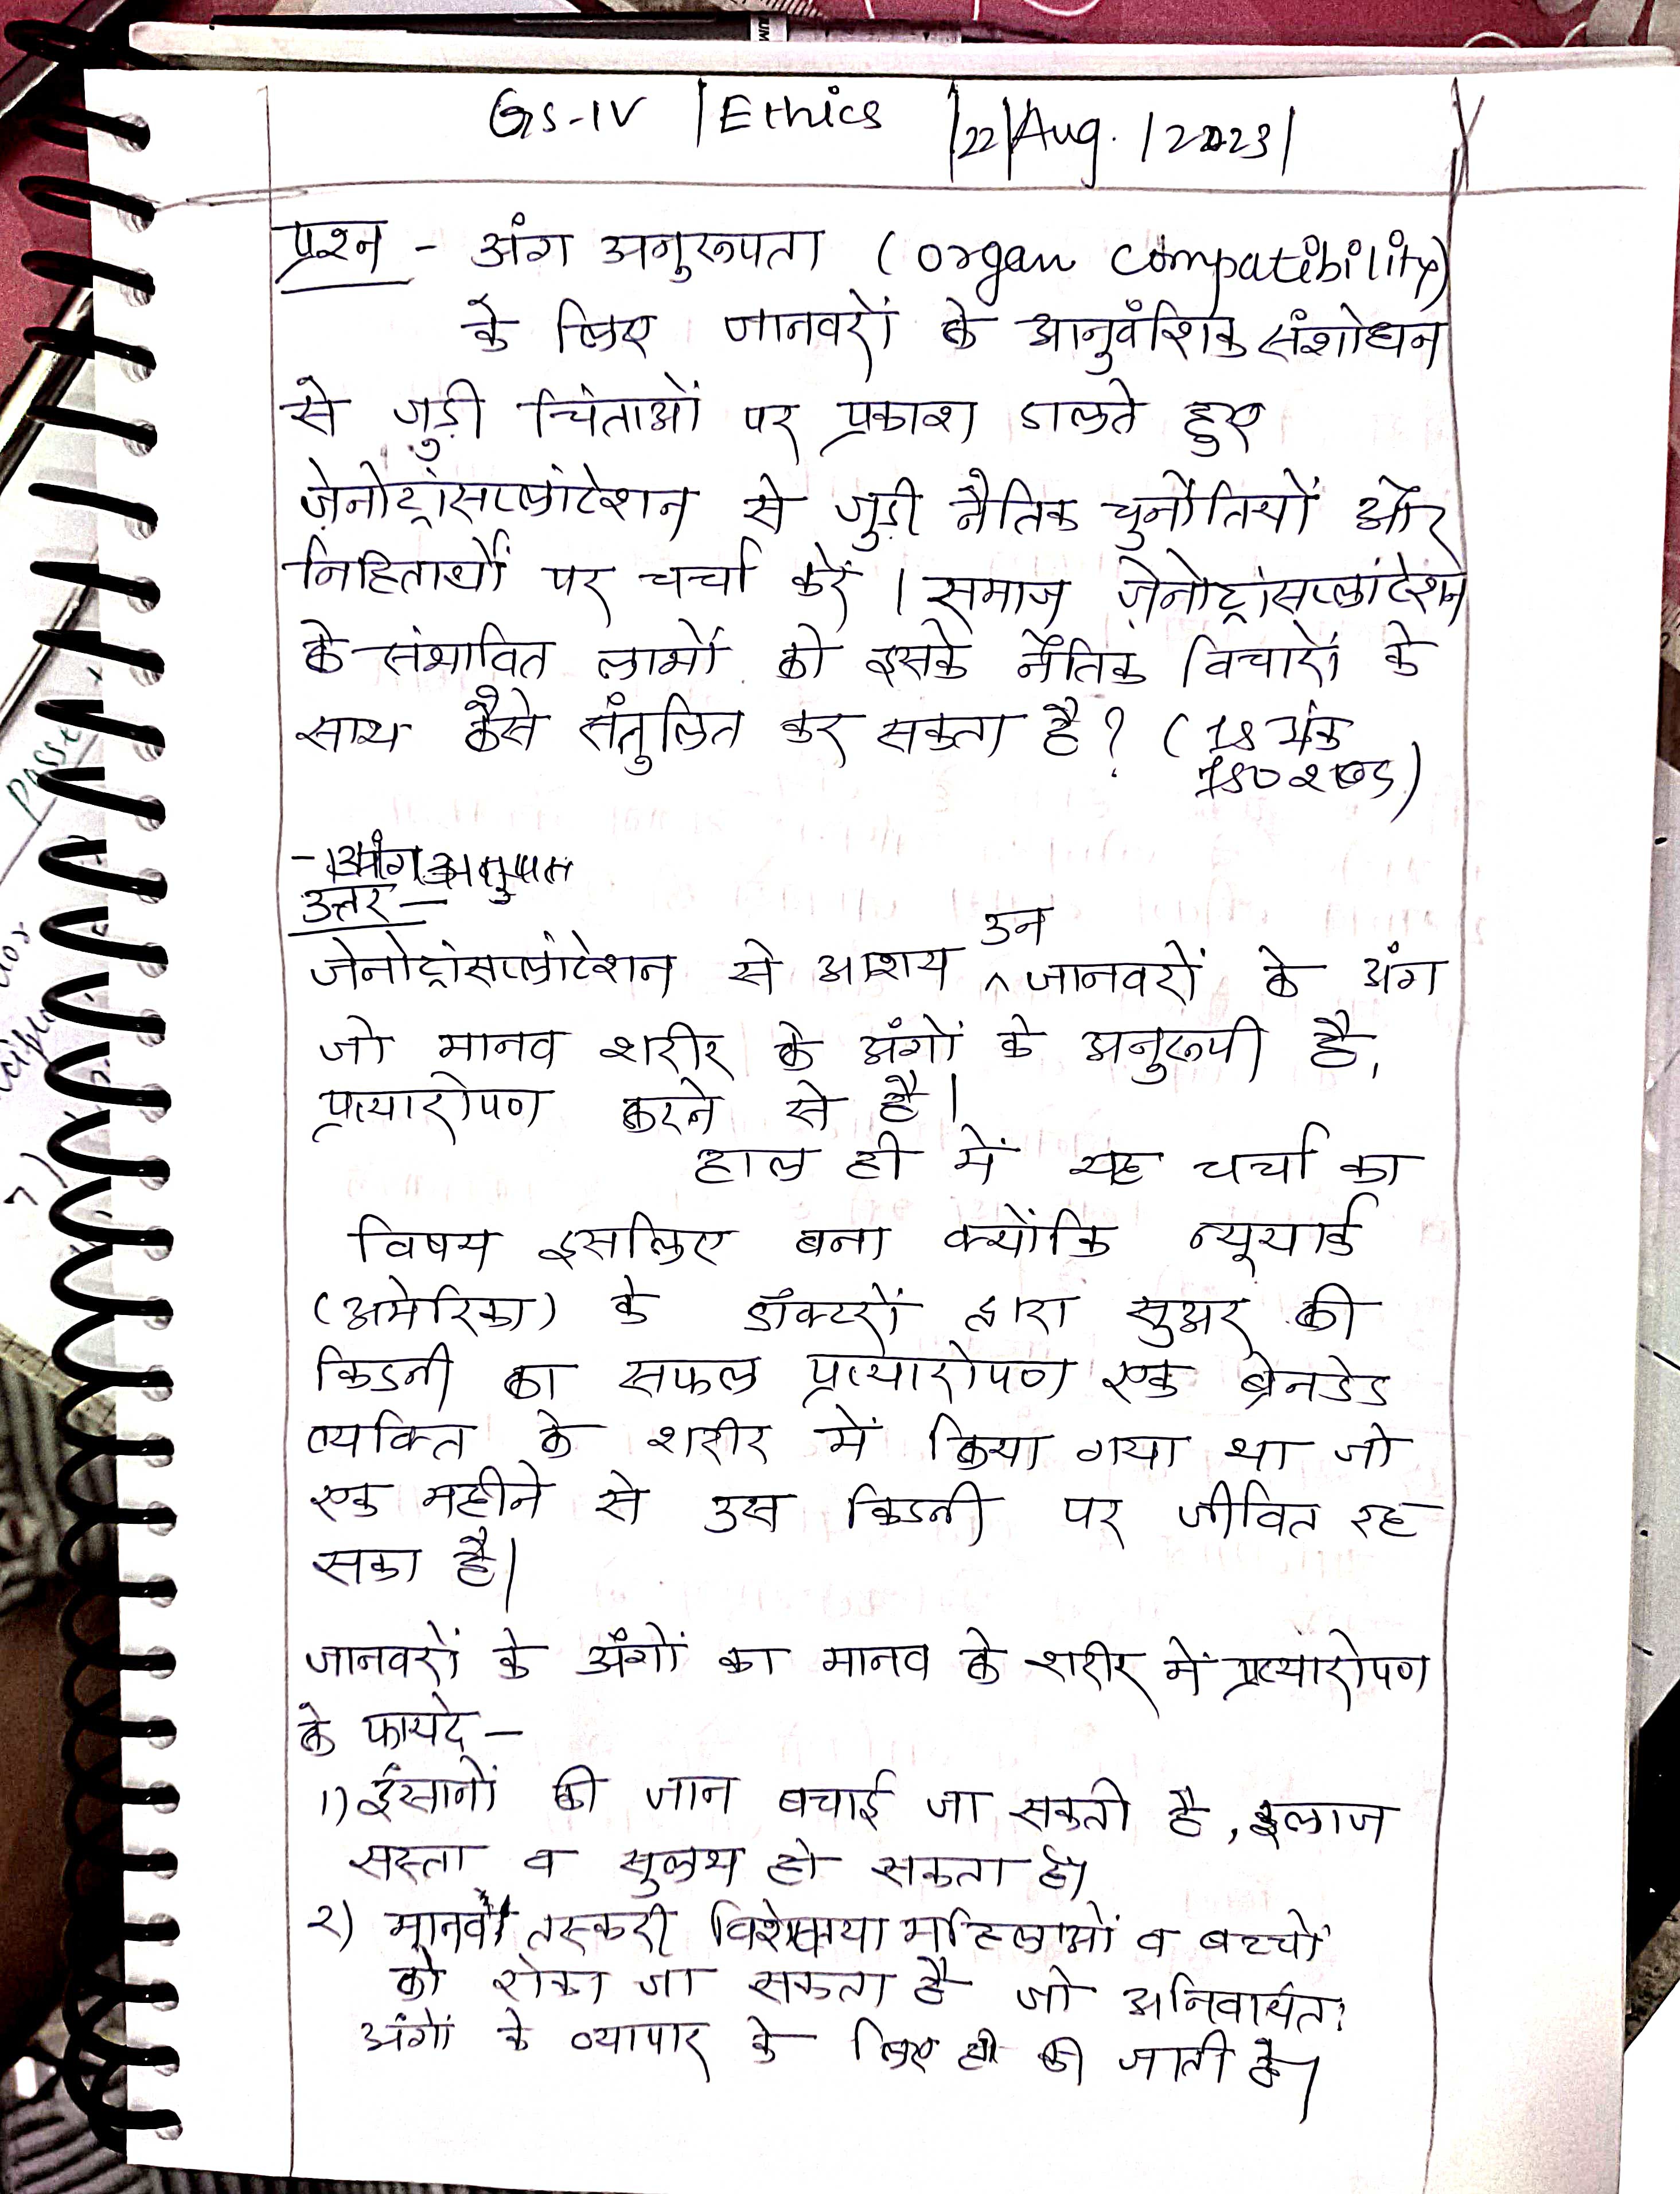 GS-IV | Ethics |22|Aug. |2023|
प्रश्न - अंग अनुरूपता (organ compatibility)
के लिए जानवरों के आनुवंशिक संशोधन
से जुड़ी चिंताओं पर प्रकाश डालते हुए
ज़ेनोट्रांसप्लांटेशन से जुड़ी नैतिक चुनौतियों और
निहितार्थों पर चर्चा करें । समाज ज़ेनोट्रांसप्लांटेशन
के संभावित लाभों को इसके नैतिक विचारों के
साथ कैसे संतुलित कर सकता है? (15 अंक
150 शब्द)
उत्तर -
जेनोट्रांसप्लांटेशन से आशय उन जानवरों के अंग
जो मानव शरीर के अंगों के अनुरूपी है,
प्रत्यारोपण करने से है।
हाल ही में यह चर्चा का
विषय इसलिए बना क्योंकि न्यूयार्क
(अमेरिका) के डॉक्टरों द्वारा सुअर की
किडनी का सफल प्रत्यारोपण एक ब्रेनडेड
व्यक्ति के शरीर में किया गया था जो
एक महीने से उस किडनी पर जीवित रह
सका है।
जानवरों के अँगों का मानव के शरीर में प्रत्यारोपण
के फायदे -
1) इंसानों की जान बचाई जा सकती है, इलाज
सस्ता व सुलभ हो सकता है।
2) मानव तस्करी विशेषतया महिलाओं व बच्चों
को रोका जा सकता है जो अनिवार्यतः
अंगों के व्यापार के लिए ही की जाती है।